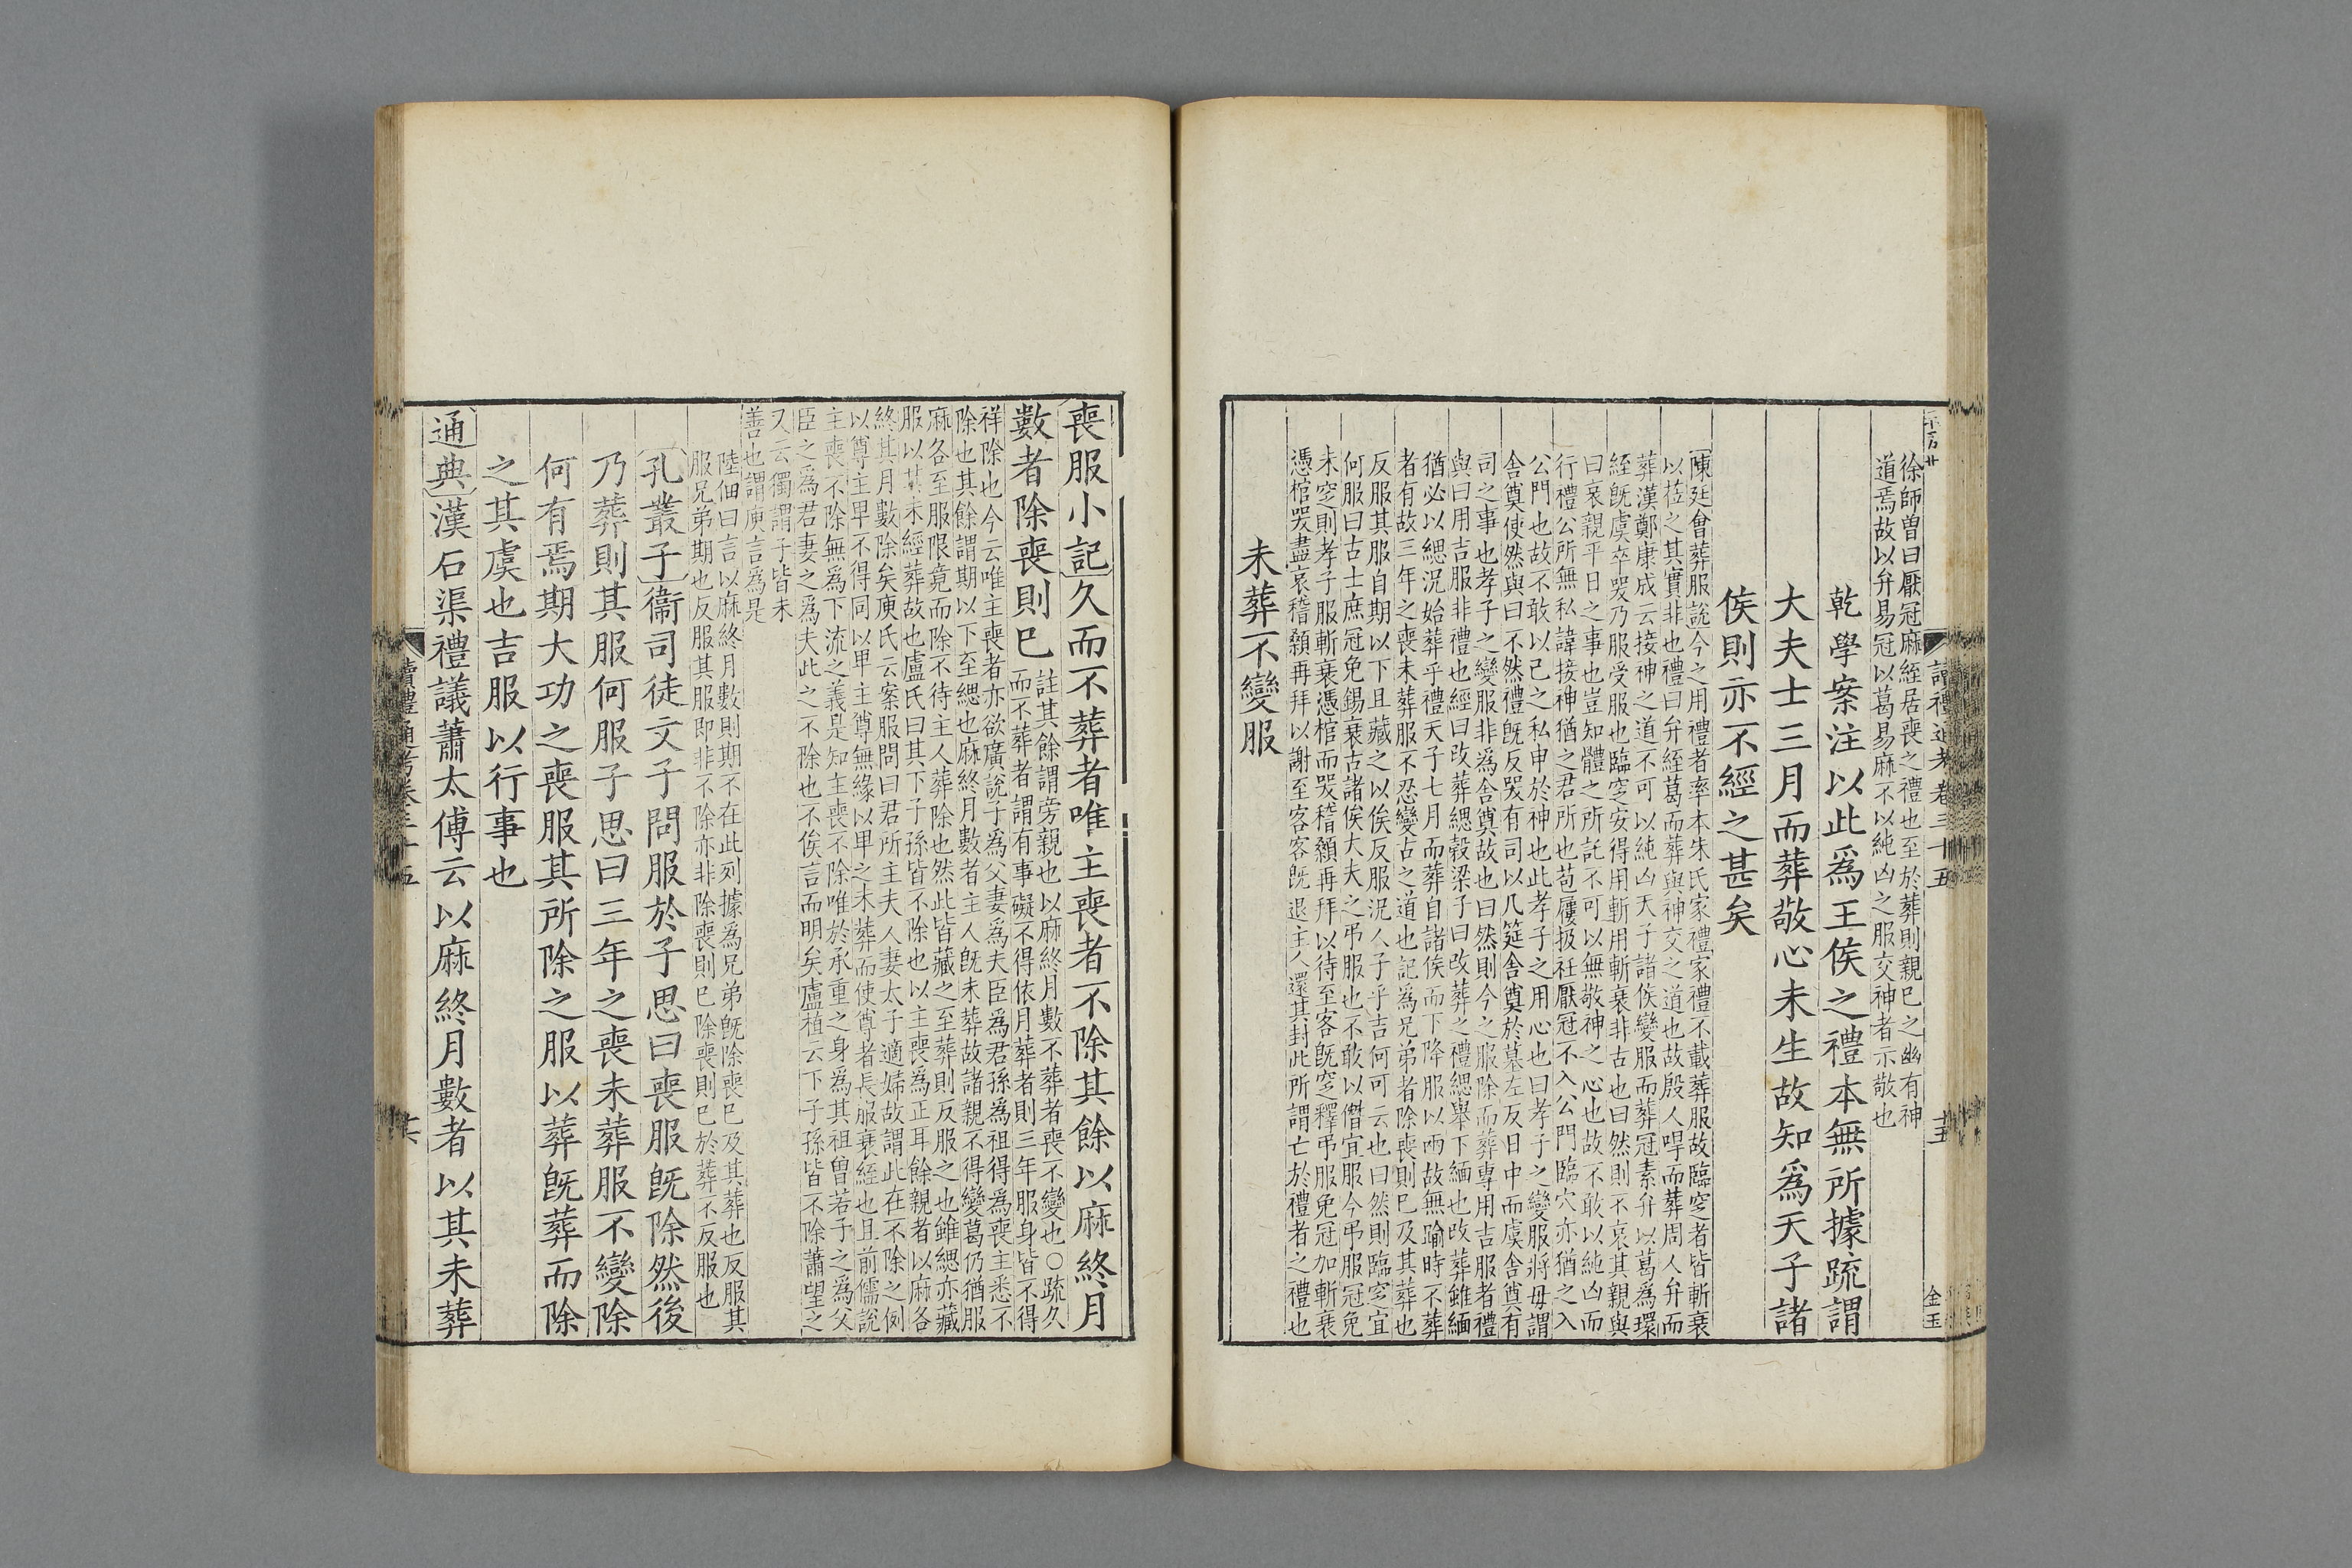 徐師曽曰厭冠麻絰居喪之禮也至於葬則親巳之幽有神
道焉故以弁易冠以葛易麻不以純凶之服交神者示敬也
乾學案注以此爲王侯之禮本無所據疏謂
大夫士三月而葬敬心未生故知爲天子諸
侯則亦不經之甚矣
陳廷曾葬服說今之用禮者率本朱氏家禮家禮不載葬服故臨窆者皆斬衰
以莅之其實非也禮曰弁絰葛而葬與神交之道也故殷人哻而葬周人弁而
葬漢鄭康成云接神之道不可以純凶天子諸侯變服而葬冠素弁以葛爲環
絰旣虞卒哭乃服受服也臨窆安得用斬用斬衰非古也曰然則不哀其親與
曰哀親平日之事也豈知體之所託不可以無敬神之心也故不敢以純凶而
行禮公所無私諱接神猶之君所也苞屨扱衽厭冠不入公門臨穴亦猶之入
公門也故不敢以己之私申於神也此孝子之用心也曰孝子之變服將毋謂
舍奠使然與曰不然禮旣反哭有司以几筵舍奠於墓左反日中而虞舍奠有
司之事也孝子之變服非爲舍奠故也曰然則今之服除而葬專用吉服者禮
與曰用吉服非禮也經曰改葬緦穀梁子曰改葬之禮緦舉下緬也改葬雖緬
猶必以緦況始葬乎禮天子七月而葬自諸侯而下降服以兩故無踰時不葬
者有故三年之喪未葬服不忍變古之道也記爲兄弟者除喪則巳及其葬也
反服其服自期以下且藏之以俟反服況人子乎吉何可云也曰然則臨窆宜
何服曰古士庶冠免錫衰古諸侯大夫之弔服也不敢以僭宜服今弔服冠免
未窆則孝子服斬衰憑棺而哭稽顙再拜以待至客旣窆釋弔服免冠加斬衰
憑棺哭盡哀稽顙再拜以謝至客客旣退主人還其封此所謂亡於禮者之禮也
未葬不變服
讀禮通考卷三十五
十五
金玉
喪服小記久而不葬者唯主喪者不除其餘以麻終月
數者除喪則巳
註其餘謂旁親也以麻終月數不葬者喪不變也○疏久
而不葬者謂有事礙不得依月葬者則三年服身皆不得
祥除也今云唯主喪者亦欲廣說子爲父妻爲夫臣爲君孫爲祖得爲喪主悉不
除也其餘謂期以下至緦也麻終月數者主人旣未葬故諸親不得變葛仍猶服
麻各至服限竟而除不待主人葬除也然此皆藏之至葬則反服之也雖緦亦藏
服以其未經葬故也盧氏曰其下子孫皆不除也以主喪爲正耳餘親者以麻各
終其月數除矣庾氏云案服問曰君所主夫人妻太子適婦故謂此在不除之例
以尊主卑不得同以卑主尊無緣以卑之未葬而使尊者長服衰絰也且前儒說
主喪不除無爲下流之義是知主喪不除唯於承重之身爲其祖曾若子之爲父
臣之爲君妻之爲夫此之不除也不俟言而明矣盧植云下子孫皆不除蕭望之
又云獨謂子皆未
善也謂庾言爲是
陸佃曰言以麻終月數則期不在此列據爲兄弟旣除喪巳及其葬也反服其
服兄弟期也反服其服即非不除亦非除喪則巳除喪則巳於葬不反服也
孔叢子衞司徒文子問服於子思曰喪服旣除然後
乃葬則其服何服子思曰三年之喪未葬服不變除
何有焉期大功之喪服其所除之服以葬旣葬而除
之其虞也吉服以行事也
通典漢石渠禮議蕭太傅云以麻終月數者以其未葬
讀禮通考卷三十五